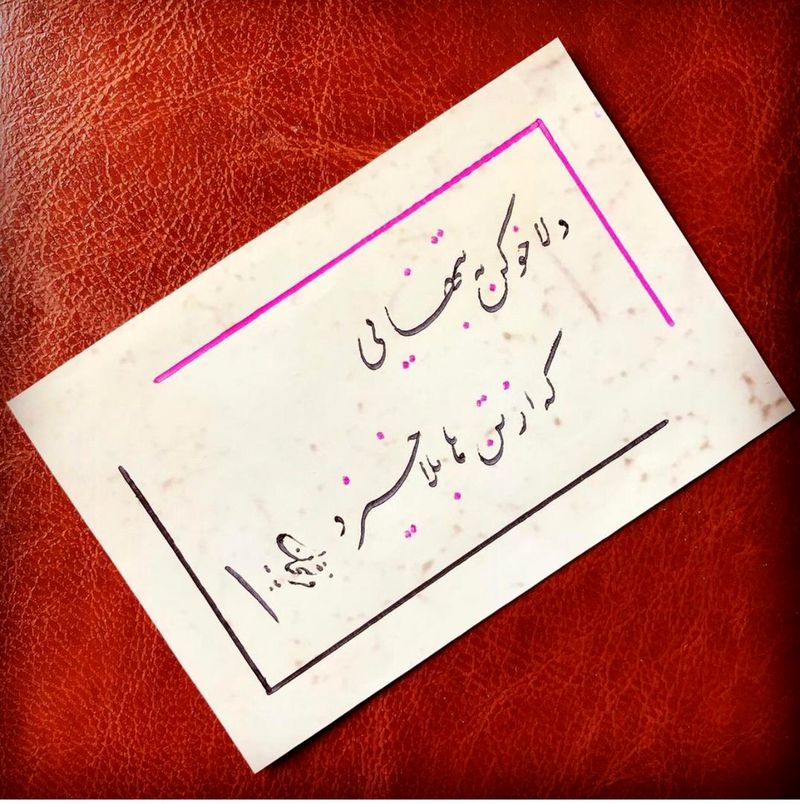 دلا خو کن به تنهایی
که از تن ها بلا خیزد